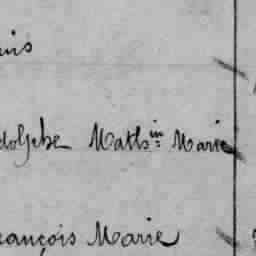 uis
dolphe Math^in Marie
rançois Marie